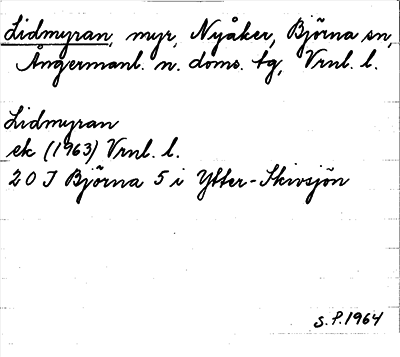 Lidmyran, myr, Nyåker, Björna sn,
Ångermanl. n. doms. tg, Vrnl. l.
Lidmyran
ek (1963) Vrnl. l.
20 J Björna 5 i Ytter-Skivsjön
S.P. 1964